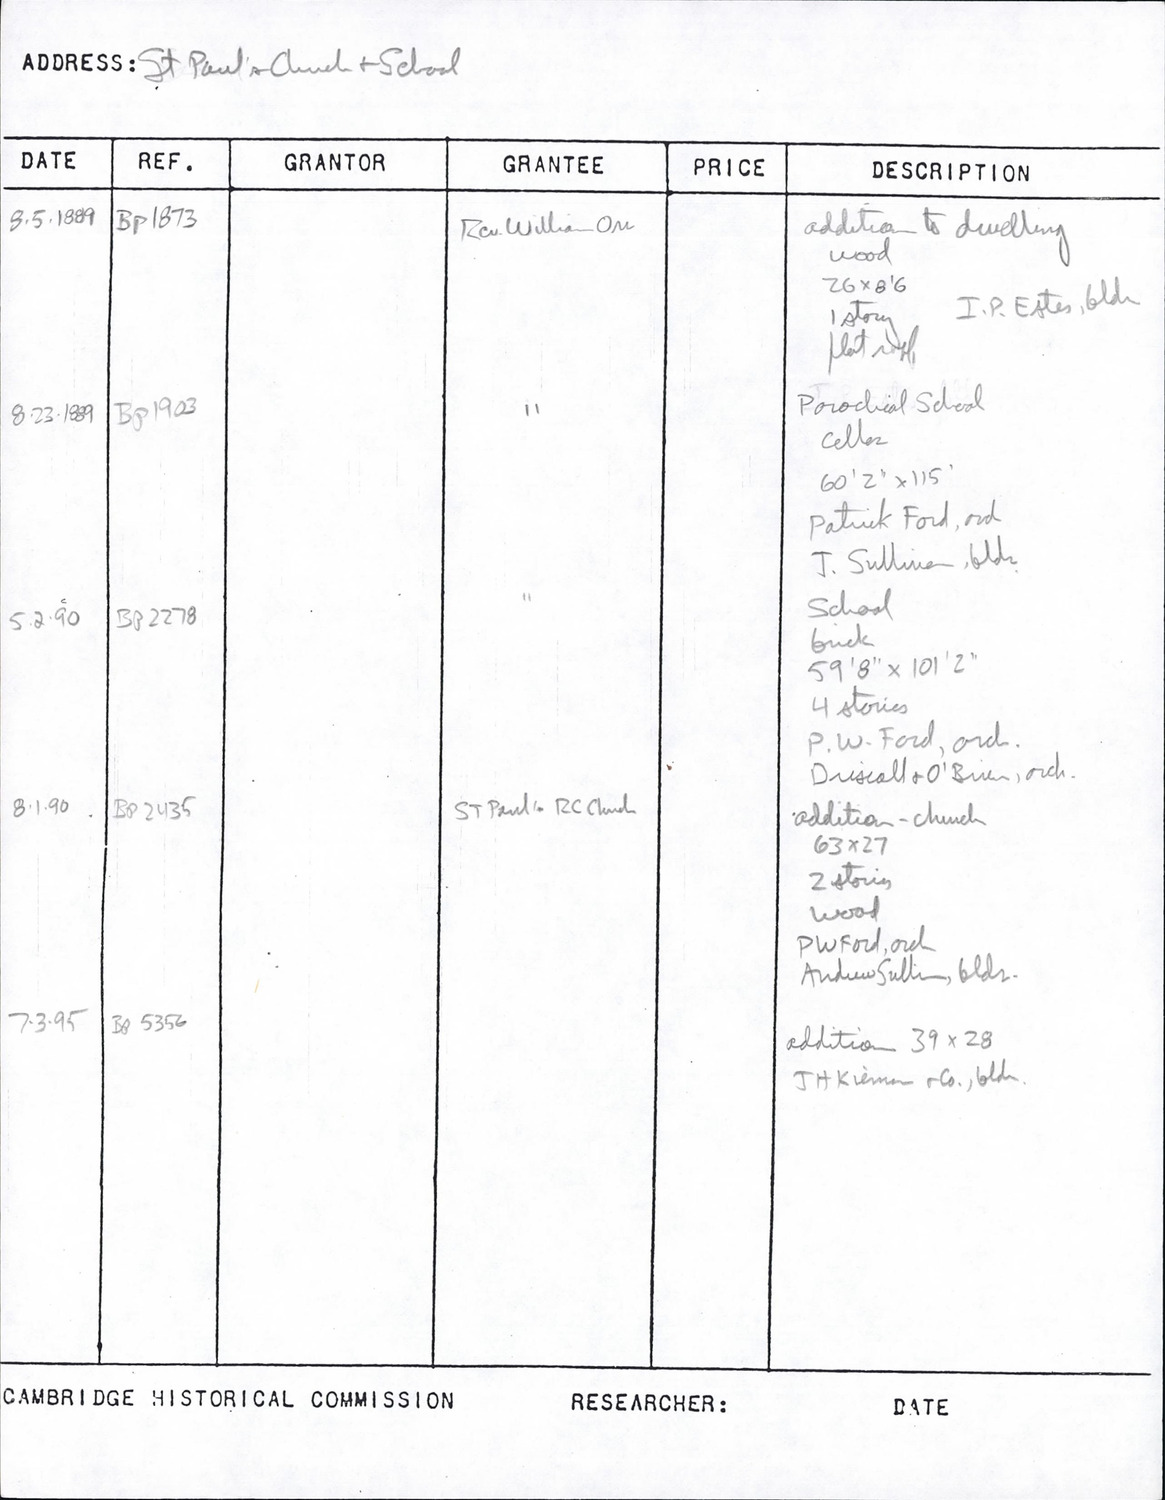 ADDRESS: St Paul's Church + School
DATE REF. GRANTOR GRANTEE PRICE DESCRIPTION
8.5.1889 Bp 1873 Rev. William Orr addition to dwelling
wood
26 x 8'6
1 story I.P. Estes, bldr
flat roof
8.23.1889 Bp 1903 " Parochial School
cellar
60' 2" x 115'
Patrick Ford, arch
J. Sullivan, bldr.
5.2.90 Bp 2278 " School
brick
59'8" x 101'2"
4 stories
P.W. Ford, arch.
Driscoll + O'Brien, arch.
8.1.90 Bp 2435 ST Paul's RC Church addition - church
63 x 27
2 stories
wood
PW Ford, arch
Andrew Sullivan, bldr.
7.3.95 Bp 5356
addition 39 x 28
JH Kiernan + Co., bldr.
CAMBRIDGE HISTORICAL COMMISSION RESEARCHER: DATE